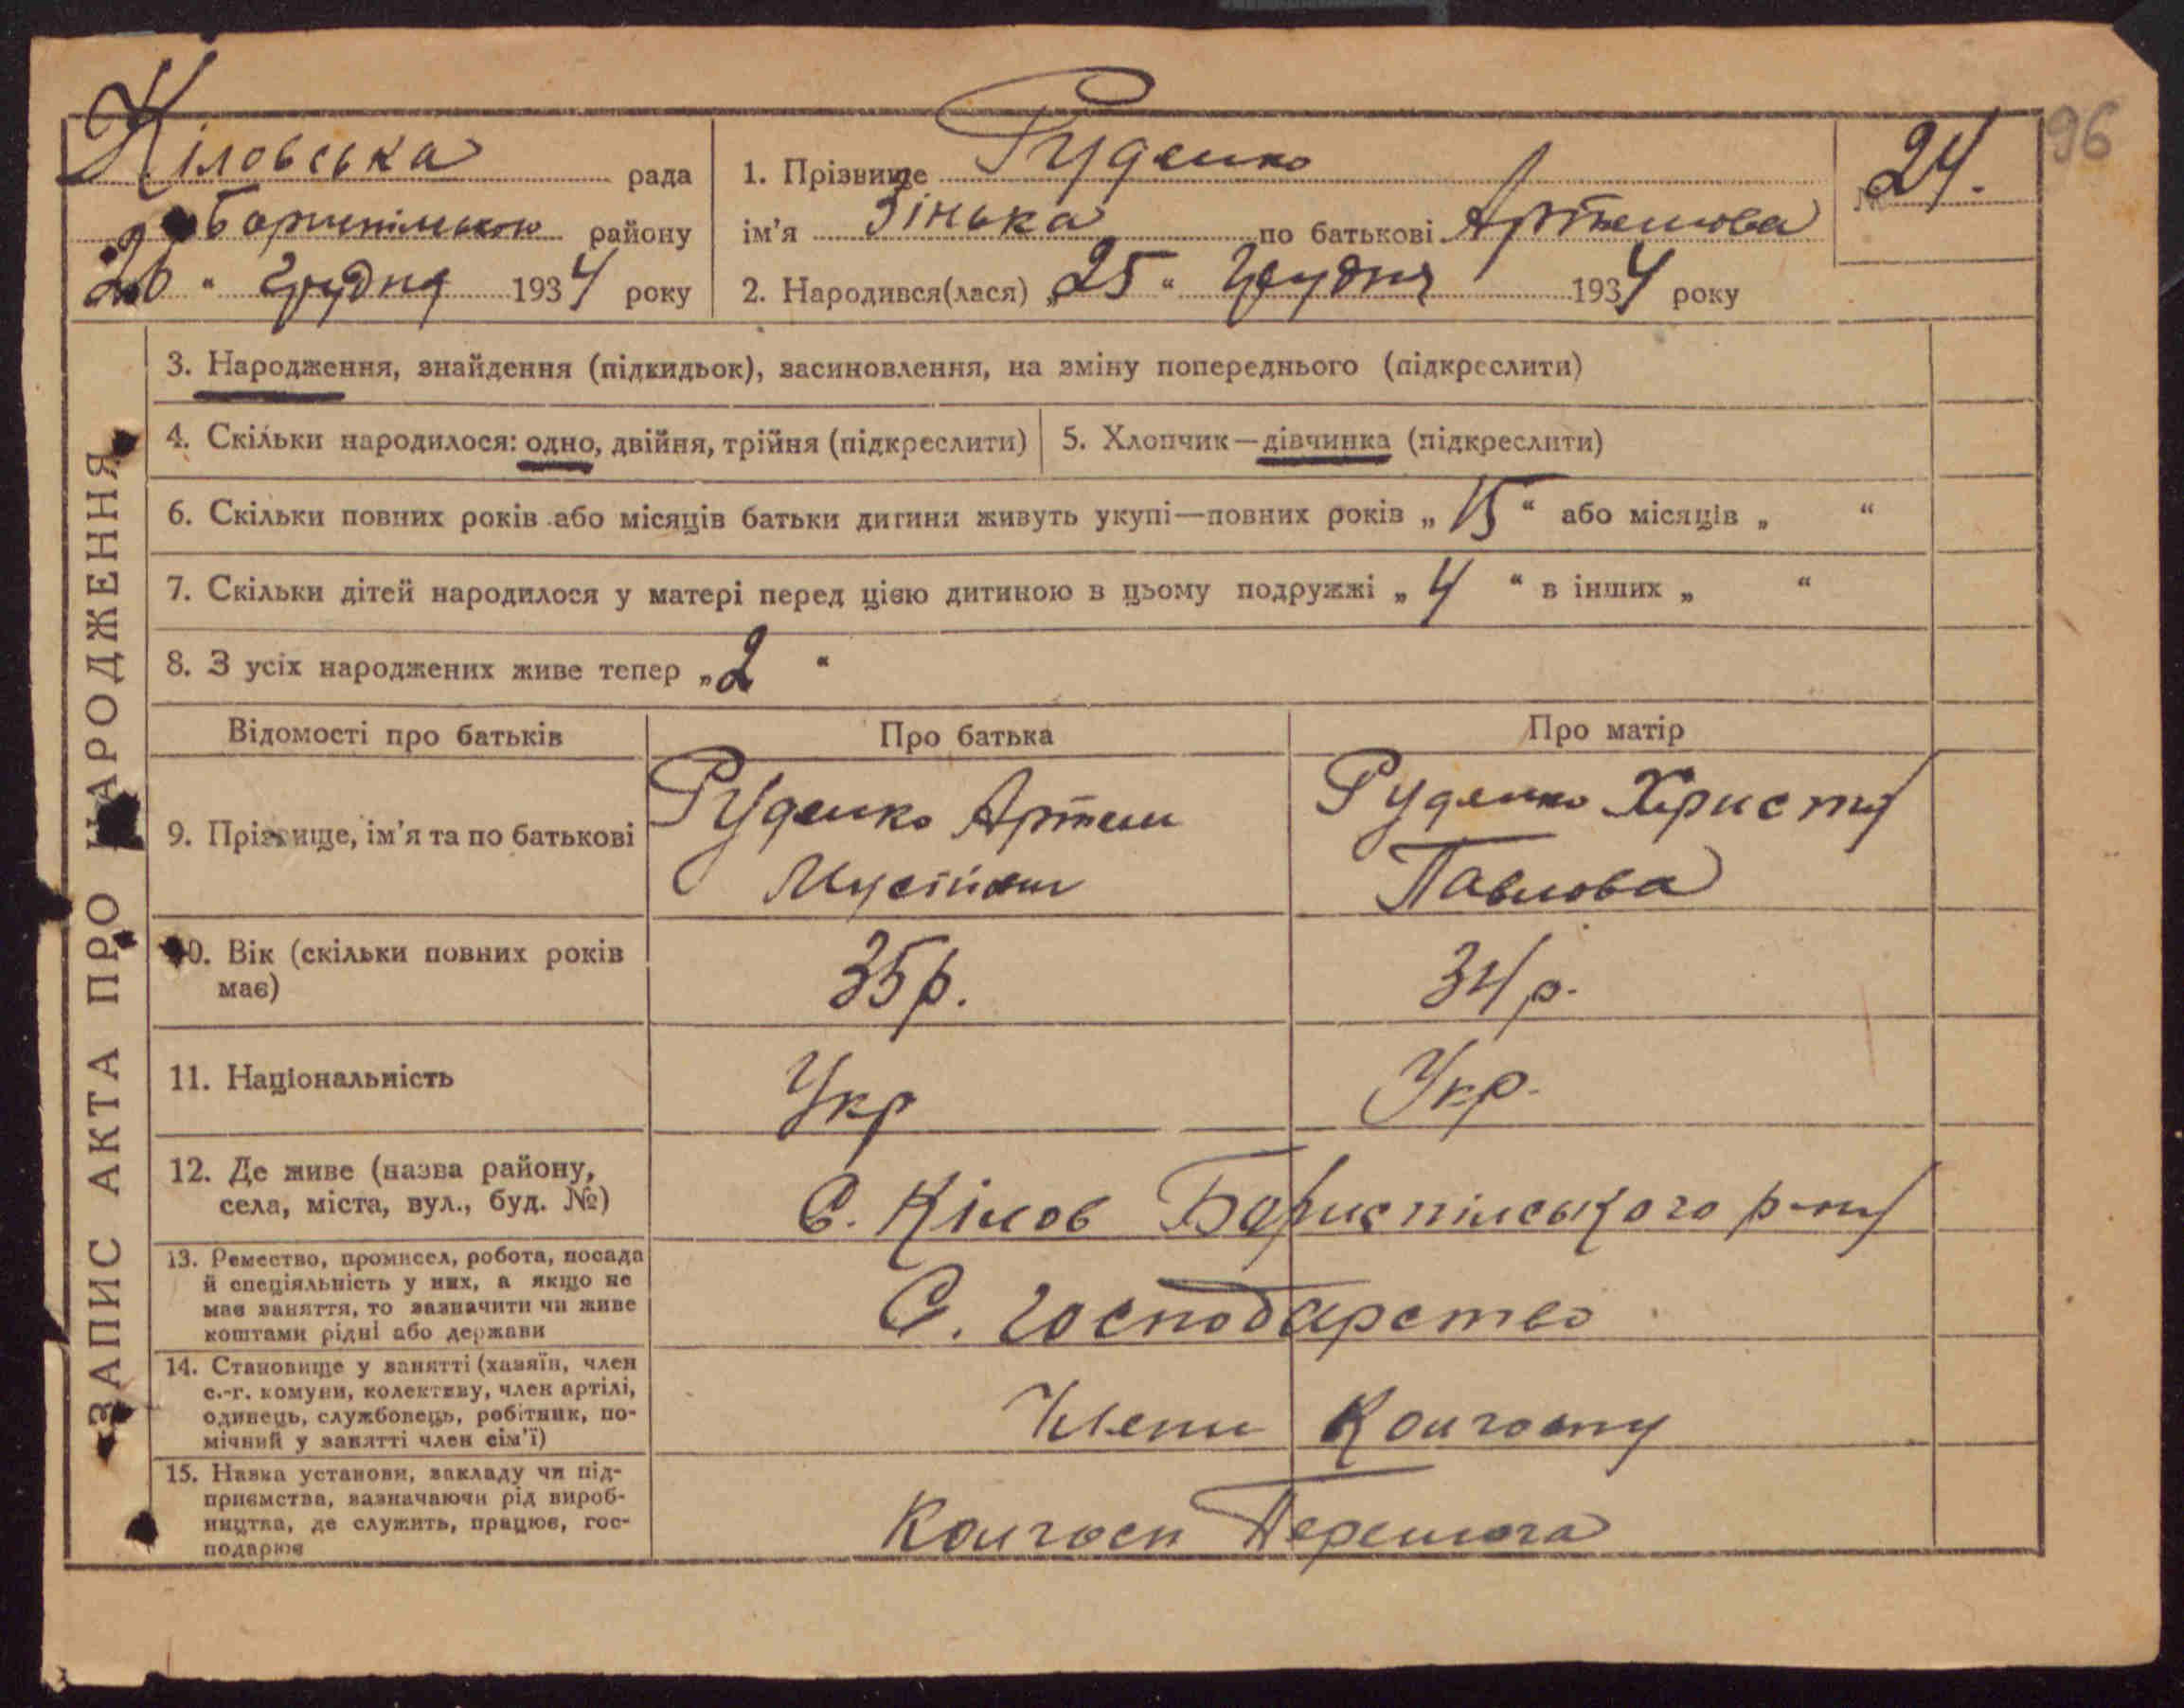 96
Кіловська рада
Бориспільського району
"26" грудня 1934 року
1. Прізвище Руденко
ім'я Зінька по батькові Артемова
2. Народився(лася) „25“ грудня 1934 року
№ 24.
ЗАПИС АКТА ПРО НАРОДЖЕННЯ
3. Народження, знайдення (підкидьок), засиновлення, на зміну попереднього (підкреслити)
4. Скільки народилося: одно, двійня, трійня (підкреслити)
5. Хлопчик—дівчинка (підкреслити)
6. Скільки повних років або місяців батьки дитини живуть укупі—повних років „15“ або місяців „ “
7. Скільки дітей народилося у матері перед цією дитиною в цьому подружжі „4“ в інших „ “
8. З усіх народжених живе тепер „2“
Відомості про батьків
Про батька
Про матір
9. Прізвище, ім'я та по батькові
Руденко Артем
Руденко Христя
Павлова
10. Вік (скільки повних років
має)
35 р.
34 р.
11. Національність
Укр
Укр.
12. Де живе (назва району,
села, міста, вул., буд. №)
С. Кілов Бориспільського р-ну
13. Ремество, промисел, робота, посада
й спеціяльність у них, а якщо не
має заняття, то зазначити чи живе
коштами рідні або держави
С. господарство
14. Становище у занятті (хазяїн, член
с.-г. комуни, колективу, член артілі,
одинець, службовець, робітник, по-
мічний у занятті член сім'ї)
Члени Колгоспу
15. Назва установи, закладу чи під-
приємства, зазначаючи рід вироб-
ництва, де служить, працює, гос-
подарює
Колгосп Перемога